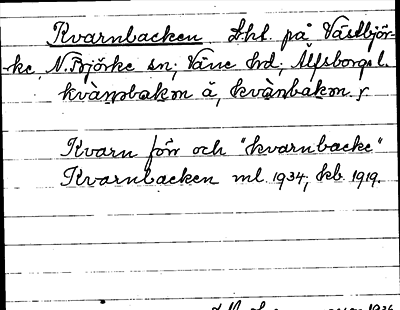 Kvarnbacken Lht. på Västbjör-
ke, N. Björke sn; Väne hd; Älfsborgs l.
kvàṇbakən ä, kvànbakən r
Kvarn förr och "kvarnbacke"
Kvarnbacken ml. 1934, kb. 1919.